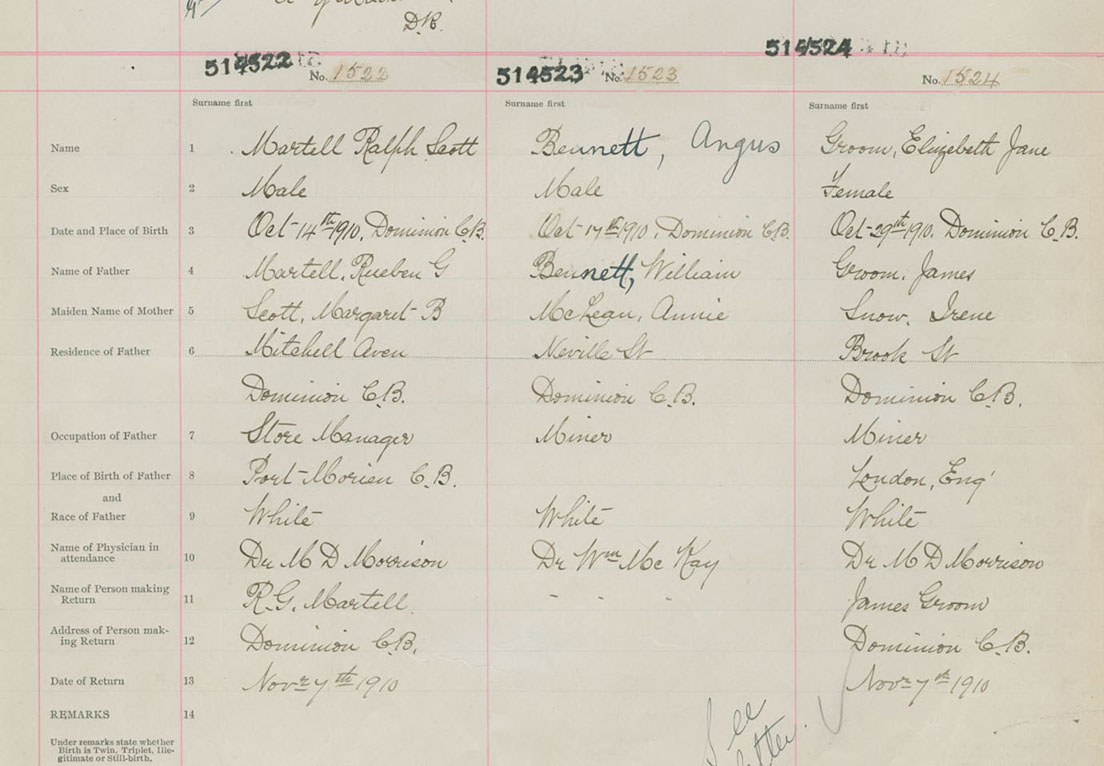 D.R.
514522 514523 514524
No. 1522 No. 1523 No. 1524
Surname first Surname first Surname first
Name 1 Martell Ralph Scott Bennett, Angus Groom, Elizebeth Jane
Sex 2 Male Male Female
Date and Place of Birth 3 Oct-14th-1910. Dominion C.B. Oct-17th 1910. Dominion C.B. Oct-29th 1910. Dominion C.B.
Name of Father 4 Martell. Rueben G Bennett, William Groom. James
Maiden Name of Mother 5 Scott, Margaret B McLean, Annie Snow. Irene
Residence of Father 6 Mitchell Aven Neville St Brook St
Dominion C.B. Dominion C.B. Dominion C.B.
Occupation of Father 7 Store Manager Miner Miner
Place of Birth of Father 8 Port-Morien C.B. London, Eng'
and
Race of Father 9 White White White
Name of Physician in
attendance 10 Dr M D Morrison Dr Wm Mc Kay Dr M D Morrison
Name of Person making
Return 11 R.G. Martell. - - - James Groom
Address of Person mak-
ing Return 12 Dominion C.B. Dominion C.B.
Date of Return 13 Novr 7th 1910 Novr 7th 1910
REMARKS 14
See
Under remarks state whether
Birth is Twin, Triplet, Ille-
gitimate or Still-birth.